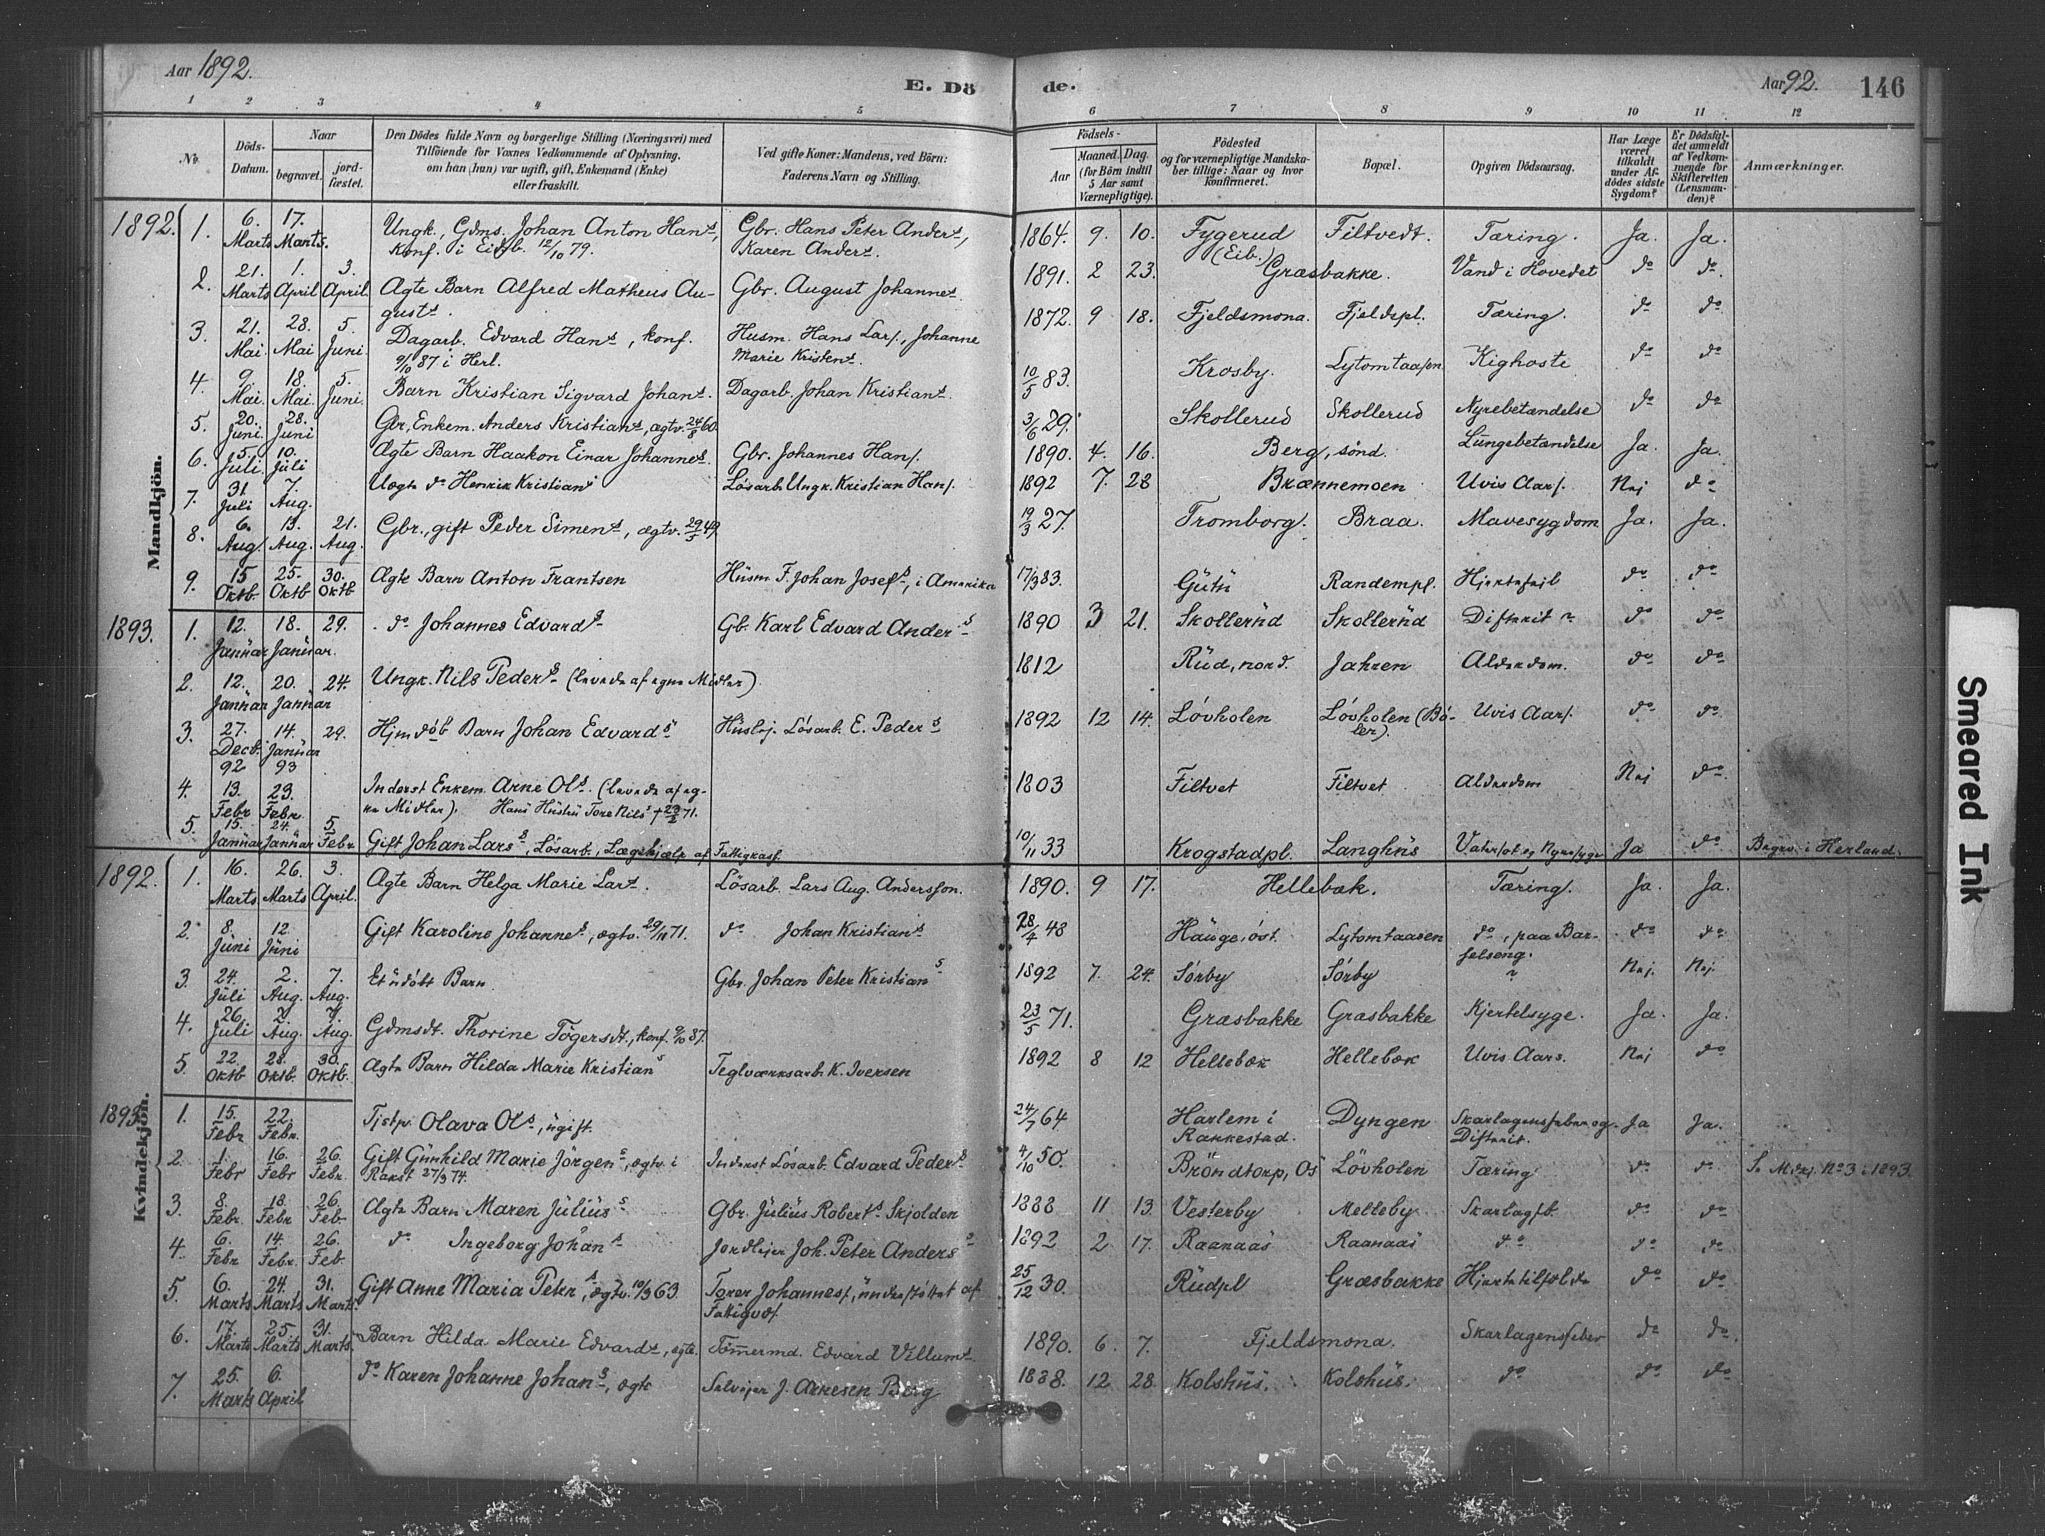 Aar 1892.
E. Dö
de.
Aar 92.
146
1 2 3 4 5 6 7 8 9 10 11 12
No.
Döds-Datum.
Naar
begravet.
jordfæstet.
Den Dödes fulde Navn og borgerlige Stilling (Næringsvei) med
Tilföiende for Voxnes Vedkommende af Oplysning,
om han (hun) var ugift, gift, Enkemand (Enke)
eller fraskilt.
Ved gifte Koner: Mandens, ved Börn:
Faderens Navn og Stilling.
Födsels-
Aar
Maaned. Dag.
(for Börn indtil
5 Aar samt
Værnepligtige).
Födested
og for værnepligtige Mandskaber tillige: Naar og hvor
konfirmeret.
Bopæl.
Opgiven Dödsaarsag.
Har Læge
været
tilkaldt
under Afdödes sidste
Sygdom?
Er Dödsfaldet anmeldt
af Vedkommende for
Skifteretten
(Lensmanden)?
Anmærkninger.
Mandkjön.
1892. 1. 6. Marts 17. Marts. Ungk., Gdms. Johan Anton Hans, Konf. i Eidsb. 12/10 79. Gbr. Hans Peter Anders, Karen Anders. 1864. 9. 10. Fygerud (Eib.) Filtvedt. Tæring. Ja. Ja.
2. 21. Marts 1. April 3. April Ægte Barn Alfred Matheus Augusts. Gbr. August Johannes. 1891. 2 23. Græsbakke. Vand i Hovedet do do
3. 21. Mai. 28. Mai 5. Juni. Dagarb. Edvard Hans, konf. 9/10 87 i Herl. Husm. Hans Lars., Johanne Marie Kristens. 1872. 9 18. Fjeldsmona. Fjeldspl. Tæring. do do
4. 9. Mai. 18. Mai. 5. Juni. Barn Kristian Sigvard Johans. Dagarb. Johan Kristians. 10/5 83. Krosby. Lytomtaasen Kighoste do do
5. 20. Juni. 28. Juni Gbr, Enkem. Anders Kristians, ægtv. 24/8 60. 3/6 29. Skollerud Skollerud Nyrebetændelse do do
6. 5. Juli. 10. Juli Ægte Barn Haakon Einar Johannes. Gbr. Johannes Hans. 1890. 4. 16. Berg, sönd. Lungebetændelse Ja. Ja.
7. 31. Juli 7. Aug. Uægte do Henrik Kristians Lösarb. Ungk. Kristian Hans. 1892 7. 28 Brænnemoen Uvis Aars. Nej do
8. 6. Aug. 13. Aug. 21. Aug. Gbr., gift Peder Simens, ægtv. 29/5 49. 19/3 27. Tromborg. Braa. Mavesygdom Ja. Ja.
9. 15 Oktb. 25. Oktb 30. Oktb Ægte Barn Anton Frantsen Husm. F. Johan Josefs, i Amerika 17/3 83. Gutu Randempl. Hjertefeil do do
1893. 1. 12. Januar 18. Januar. 29. do Johannes Edvards Gb. Karl Edvard Anders 1890 3 21. Skollerud Skollerud Difterit do do
2. 12. Januar 20. Januar 24. Ungk. Nils Peders (levede af egne Midler) 1812 Rud, nord. Jahren Alderdom. do do
3. 27. Decb. 92 14. Januar 93 29. Hjmdöb Barn Johan Edvards Husløj. Lösarb. E. Peders 1892 12 14. Lövholen Lövholen (Böler). Uvis Aars. do do
4. 13. Febr 23. Febr. Inderst Enkem. Arne Ols. (levede af egne Midler). Hans Hustru Tore Nils † 23/2 71. 1803 Filtvet Filtvet Alderdom Nej do
5. 15. Januar 24. Januar 5 Febr Gift Johan Lars, Lösarb., Lægehjælp af Fattigkasf. 10/11 33 Krogstadpl. Langhus Vatersot og Nyresyge Ja do Begrv. i Herland.
Kvindekjön.
1892. 1. 16. Marts 26. Marts 3. April. Ægte Barn Helga Marie Lars. Lösarb. Lars Aug. Andersson. 1890. 9 17. Hellebæk. Tæring. Ja. Ja.
2. 8. Juni 12. Juni Gift Karoline Johannes, ægtv. 29/11 71. do Johan Kristians 28/4 48 Hauge, öst. Lytomtaasen do, paa Barselseng. do do
3. 24. Juli 2. Aug. 7. Aug. Et udöbt Barn Gbr. Johan Peter Kristians 1892 7. 24. Sörby Sörby Nej. Nej.
4. 26. Juli 2. Aug. 7. Aug. Gdmsdt. Thorine Tögersdt., konf. 9/10 87. 23/5 71. Græsbakke Græsbakke Kjertelsyge. Ja. Ja.
5. 22. Oktb 28. Oktb. 30. Oktb. Ægte Barn Hilda Marie Kristians Teglværksarb. K. Iversen 1892 8 12 Hellebæk Hellebæk Uvis Aars. Nej do
1893. 1. 15. Febr 22. Febr. Tjstp. Olava Ols, ugift. 24/7 64 Harlem i Rakkestad. Dyngen Skarlagensfeber og Difterit. Ja Ja.
2. 1. Febr 16. Febr 26. Febr. Gift Gunhild Marie Jörgens, ægtv. i Rakst 27/3 74. Inderst Lösarb. Edvard Peders 4/10 50. Bröndtorp, Os Lövholen Tæring do do Se Mkj. No 3 i 1893.
3. 8. Febr. 18. Febr 26. Feb Ægte Barn Maren Julius Gbr. Julius Roberts Skjolden 1888 11 13. Vesterby Melleby Skarlagsfb. do do
4. 6. Febr 14. Febr. 26. Feb. do Ingeborg Johans Jordlejer Joh. Peter Anders 1892 2 17. Raanaas Raanaas do do do
5. 6. Marts 24. Marts 31. Marts Gift Anne Maria Peters, ægtv. 10/3 63 Torer Johannes, understöttet af Fattigvæs. 25/12 30. Rudpl Græsbakke Hjertetilfælde do do
6. 17. Marts 25. Marts 31. Marts. Barn Hilda Marie Edvards, ægte. Tömmermd. Edvard Villums. 1890. 6. 7. Fjeldsmona. Skarlagensfeber do do
7. 25. Marts 6. April do Karen Johanne Johans, ægte Selvejer J. Arnesen Berg 1888. 12 28. Kolshus. Kolshus. do do do
Smeared Ink